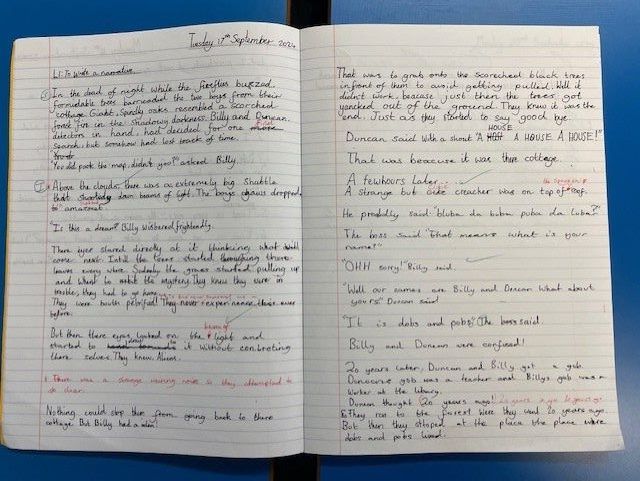 Tuesday 17th September 2024
LI: To write a narrative.
In the dead of night while the fireflies buzzed,
formidable trees barricaded the two boys from their
cottage. Giant, spindly oaks resembled a scorched
forest fire in the shadowy darkness. Billy and Duncan,
detectors in hand, had decided for one final
search but somehow had lost track of time.
"You did pack the map, didn't you?" asked Billy.
Above the clouds, there was a extremely big shuttle
that down beams of light. The boys jaws dropped
"Is this a dream?" Billy wisbered frightendly.
There eyes stared directly at it thinking what
come next. Intill the trees started
leaves every were. Sudenly the grass started pulling up
and want to the mystery. They knew they were in
trouble; they had to go home
They were bouth petrified! They never expernence this ever
before.
But then there eyes locked on the light and
started to it without controling
there selves. They knew. Aliens.
There was a strange noise so they attempted to
Nothing could stop them from going back to there
cottage. But Billy had a idea.
That was to grab onto the scoreched black trees
infront of them to avoid getting pulled. Well it
didn't work beacuse just then the trees got
yancked out of the ground. They knew it was the
end. Just as they started to say good bye.
HOUSE
Duncan said with a shout "A A HOUSE A HOUSE!"
That was beacuse it was there cottage.
A few hours later...
A strange but creacher was on top of roof.
He proudly said bluba da buba puba da luba?"
The boss said "That means what is your
name?"
"OHH sorry!" Billy said.
"Well our names are Billy and Duncan what about
yours" Duncan said
"It is dobs and pobs" The boss said.
Billy and Duncan were confused!
20 years later, Duncan and Billy got a gob.
gob was a teacher and Billys gob was a
worker at the library.
Duncan thought (20 years ago) 20 years ago
They ran to the forest were they went 20 years ago.
But then they stoped at the place the place were
dobs and pobs lived.